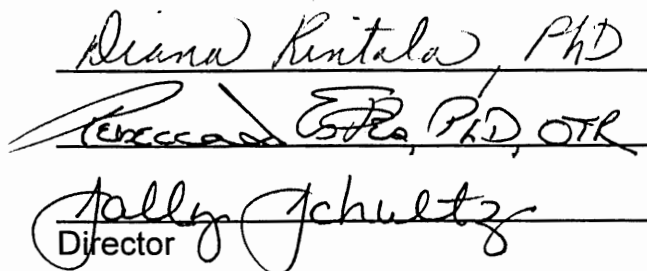 Diana Rintala, PhD
Rebecca Estes, PhD, OTR
Sally Schultz
Director